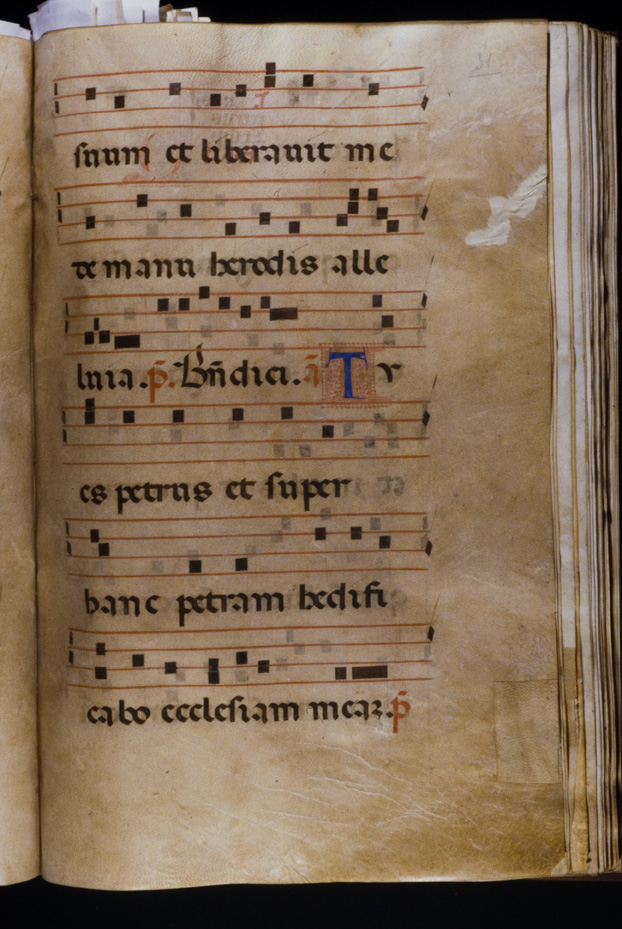 suum et liberauit me
de manu herodis alle
luia. p̄. Bn̄dici. ā Tv
es petrus et super
hanc petram hedifi
cabo ecclesiam meaꝫ. p̄